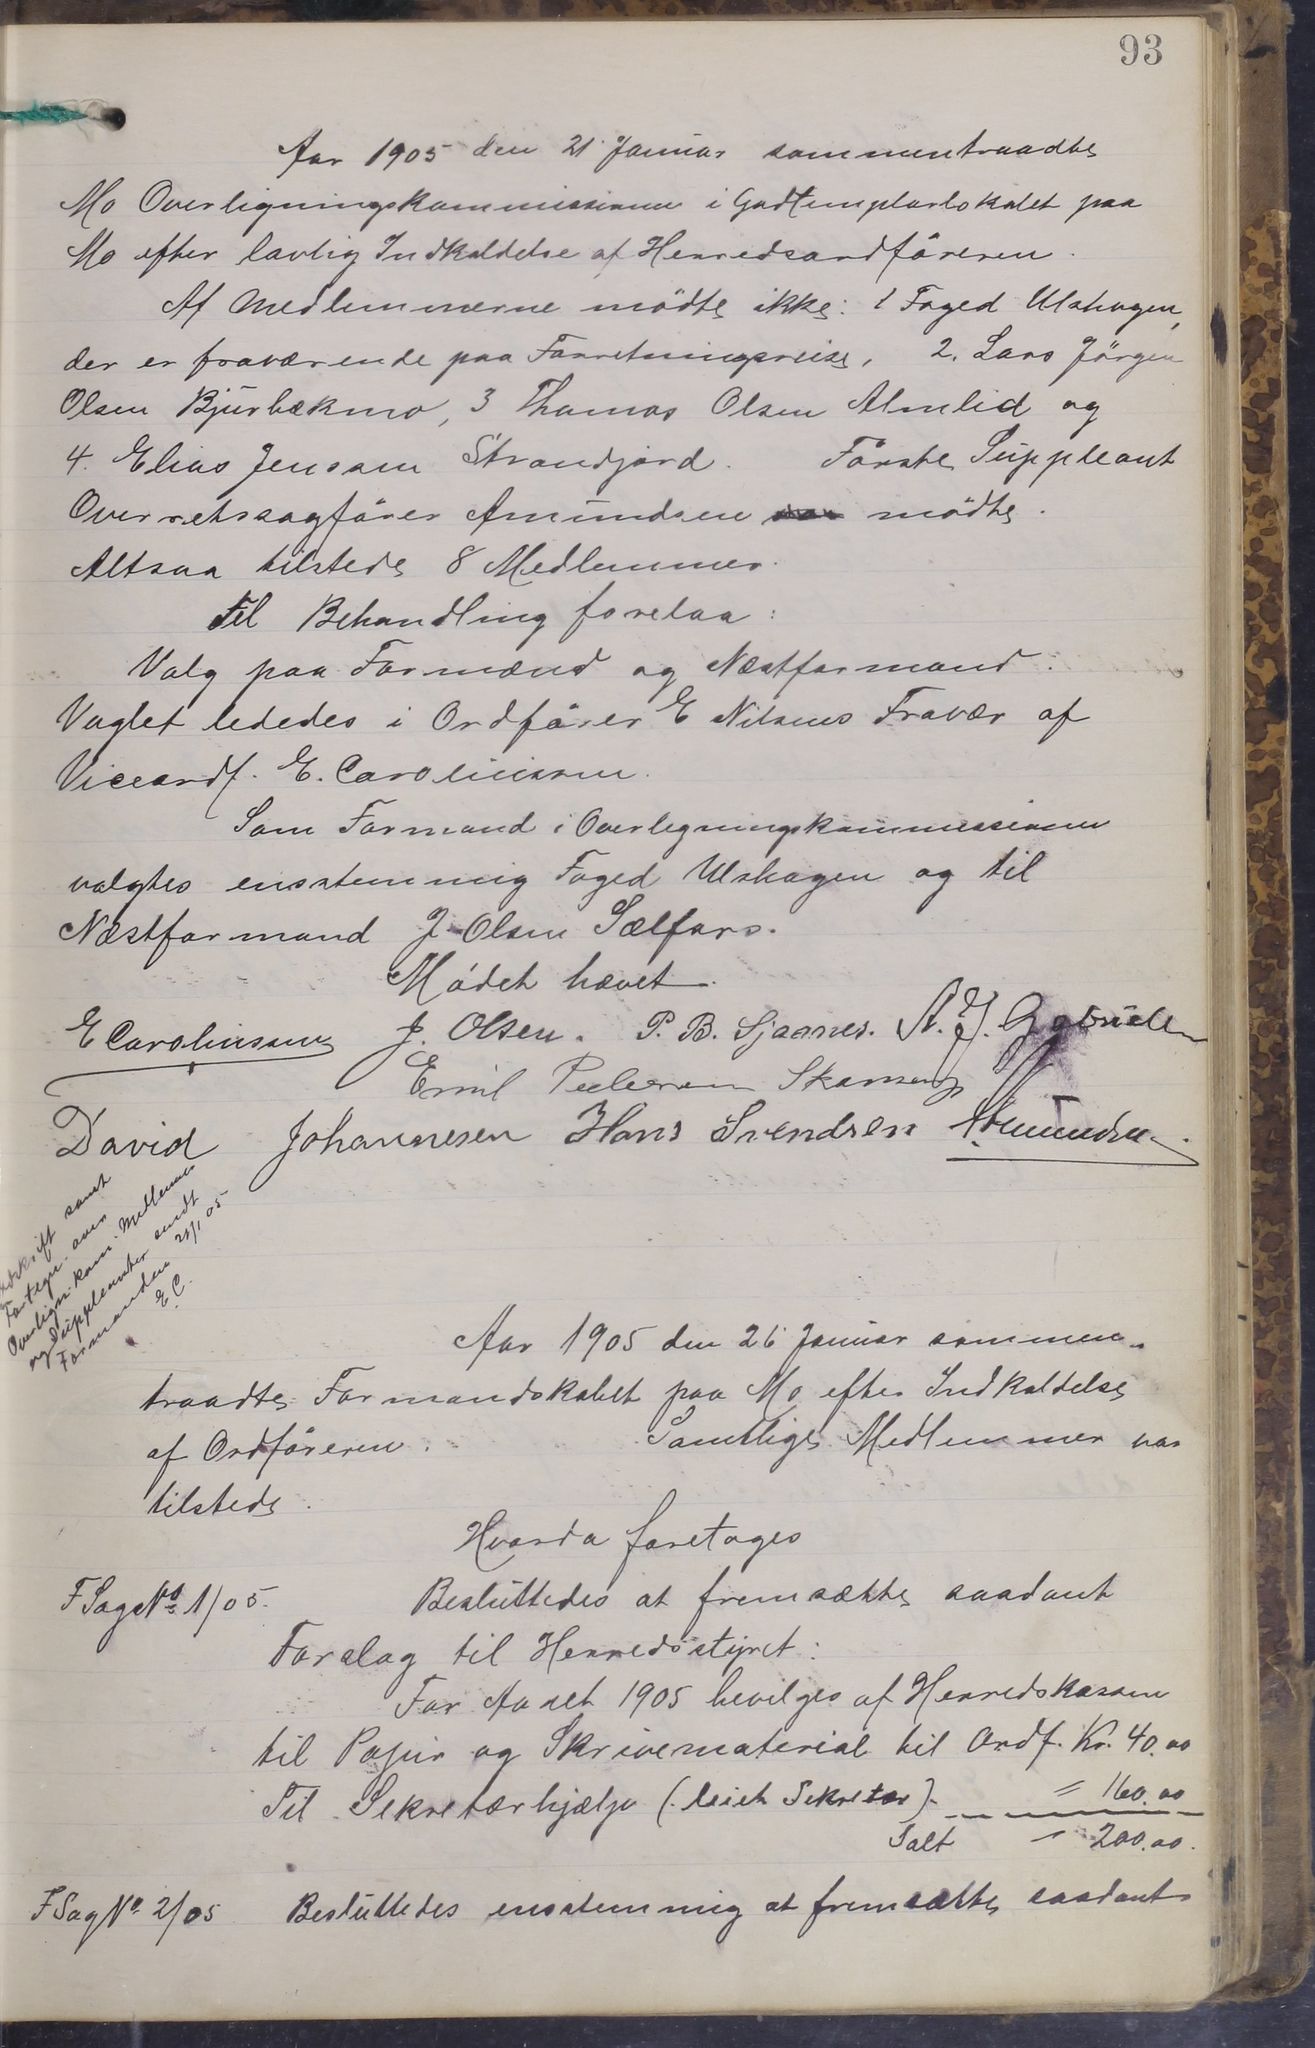 93
Aar 1905 den 21 Januar sammentraadte
Mo Overligningskommissionen i Godtemplarlokalet paa
Mo efter lovlig Indkaldelse af Herredsordföreren.
Af Medlemmerne mödte ikke: 1 Foged Ulshagen,
der er fraværende paa Forretningsreise, 2. Lars Jörgen
Olsen Bjurbækmo, 3 Thomas Olsen Almlid og
4. Elias Jensen Strandjord. Förste Suppleant
Overretssagförer Amundsen mödte.
Altsaa tilstede 8 Medlemmer.
Til Behandling forelaa:
Valg paa Formænd og Næstformand.
Vaglet lededes i Ordförer E Nilsens Fravær af
Viceordf. E. Carolinssen.
Som Formand i Overlegningskommissionen
valgtes enstemmig Foged Ulshagen og til
Næstformand J. Olsen Sælfors.
Mödet hævet.
E Carolinssen J. Olsen. P. B. Sjaanes. A. J. Gabrielsen
Emil Pedersen Skamsøy
David Johannesen Hans Svendsen Amundsen.
Udskrift samt
Fortegn. over
Overlign.kom. Medlemmer
og Suppleanter sendt
Formanden 21/1 05
E.C.
Aar 1905 den 26 Januar sammen-
traadte Formandskabet paa Mo efter Indkaldelse
af Ordföreren. Samtlige Medlemmer var
tilstede.
Hvorda foretoges
F Sag No 1/05. Besluttedes at fremsætte saadant
Forslag til Herredsstyret:
For Aaret 1905 bevilges af Herredskassen
til Papir og Skrivematerial til Ordf. Kr. 40.00
Til Sekretærhjælp (leiet Sekretær) = 160.00
Ialt " 200.00.
F Sag No 2/05 Besluttedes ensstemmig at fremsætte saadant